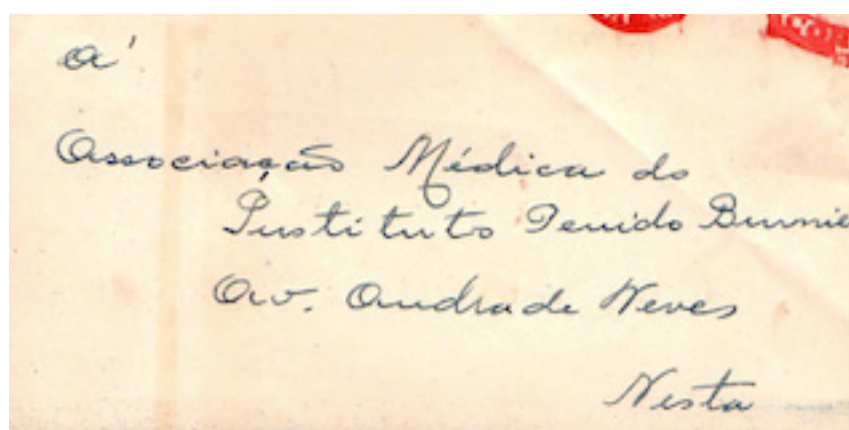 a'
Associação Médica do
Instituto Penido Burnie
Av. Andrade Neves
Nesta